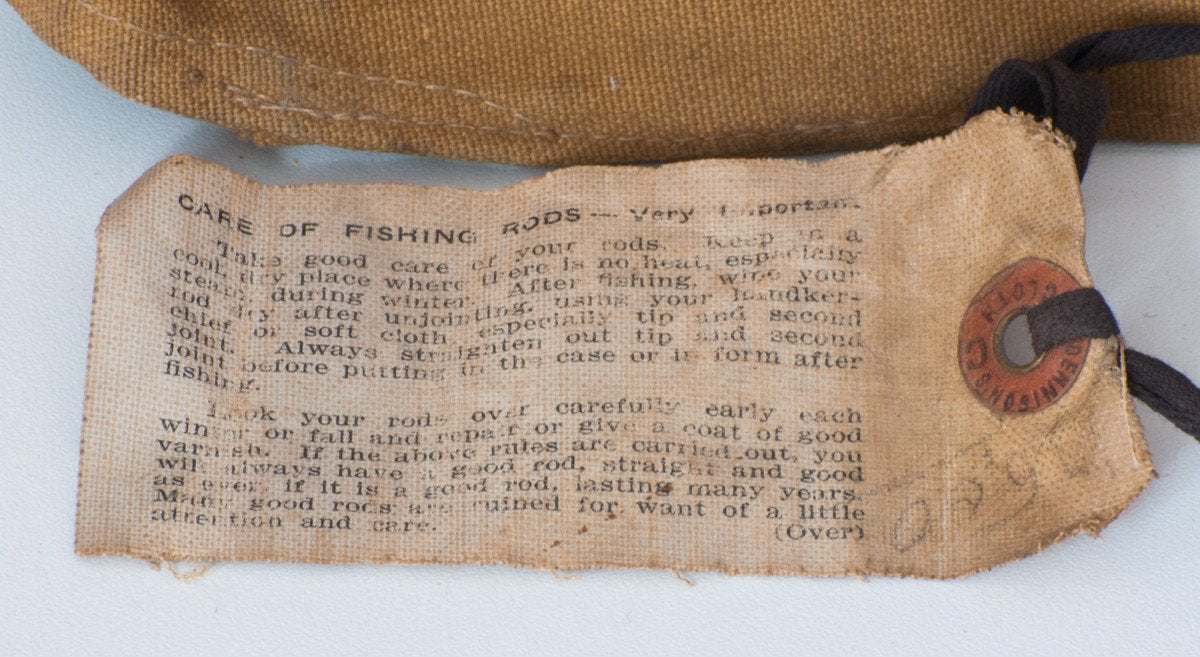 CARE OF FISHING RODS — Very Important
Take good care of your rods. Keep in a
cool, dry place where there is no heat, especially
steam, during winter. After fishing, wipe your
rod dry after unjointing, using your handker-
chief or soft cloth especially tip and second
joint. Always straighten out tip and second
joint before putting in the case or in form after
fishing.
Look your rods over carefully early each
winter or fall and repair or give a coat of good
varnish. If the above rules are carried out, you
will always have a good rod, straight and good
as ever, if it is a good rod, lasting many years.
Many good rods are ruined for want of a little
attention and care.
(Over)
DENNISON'S